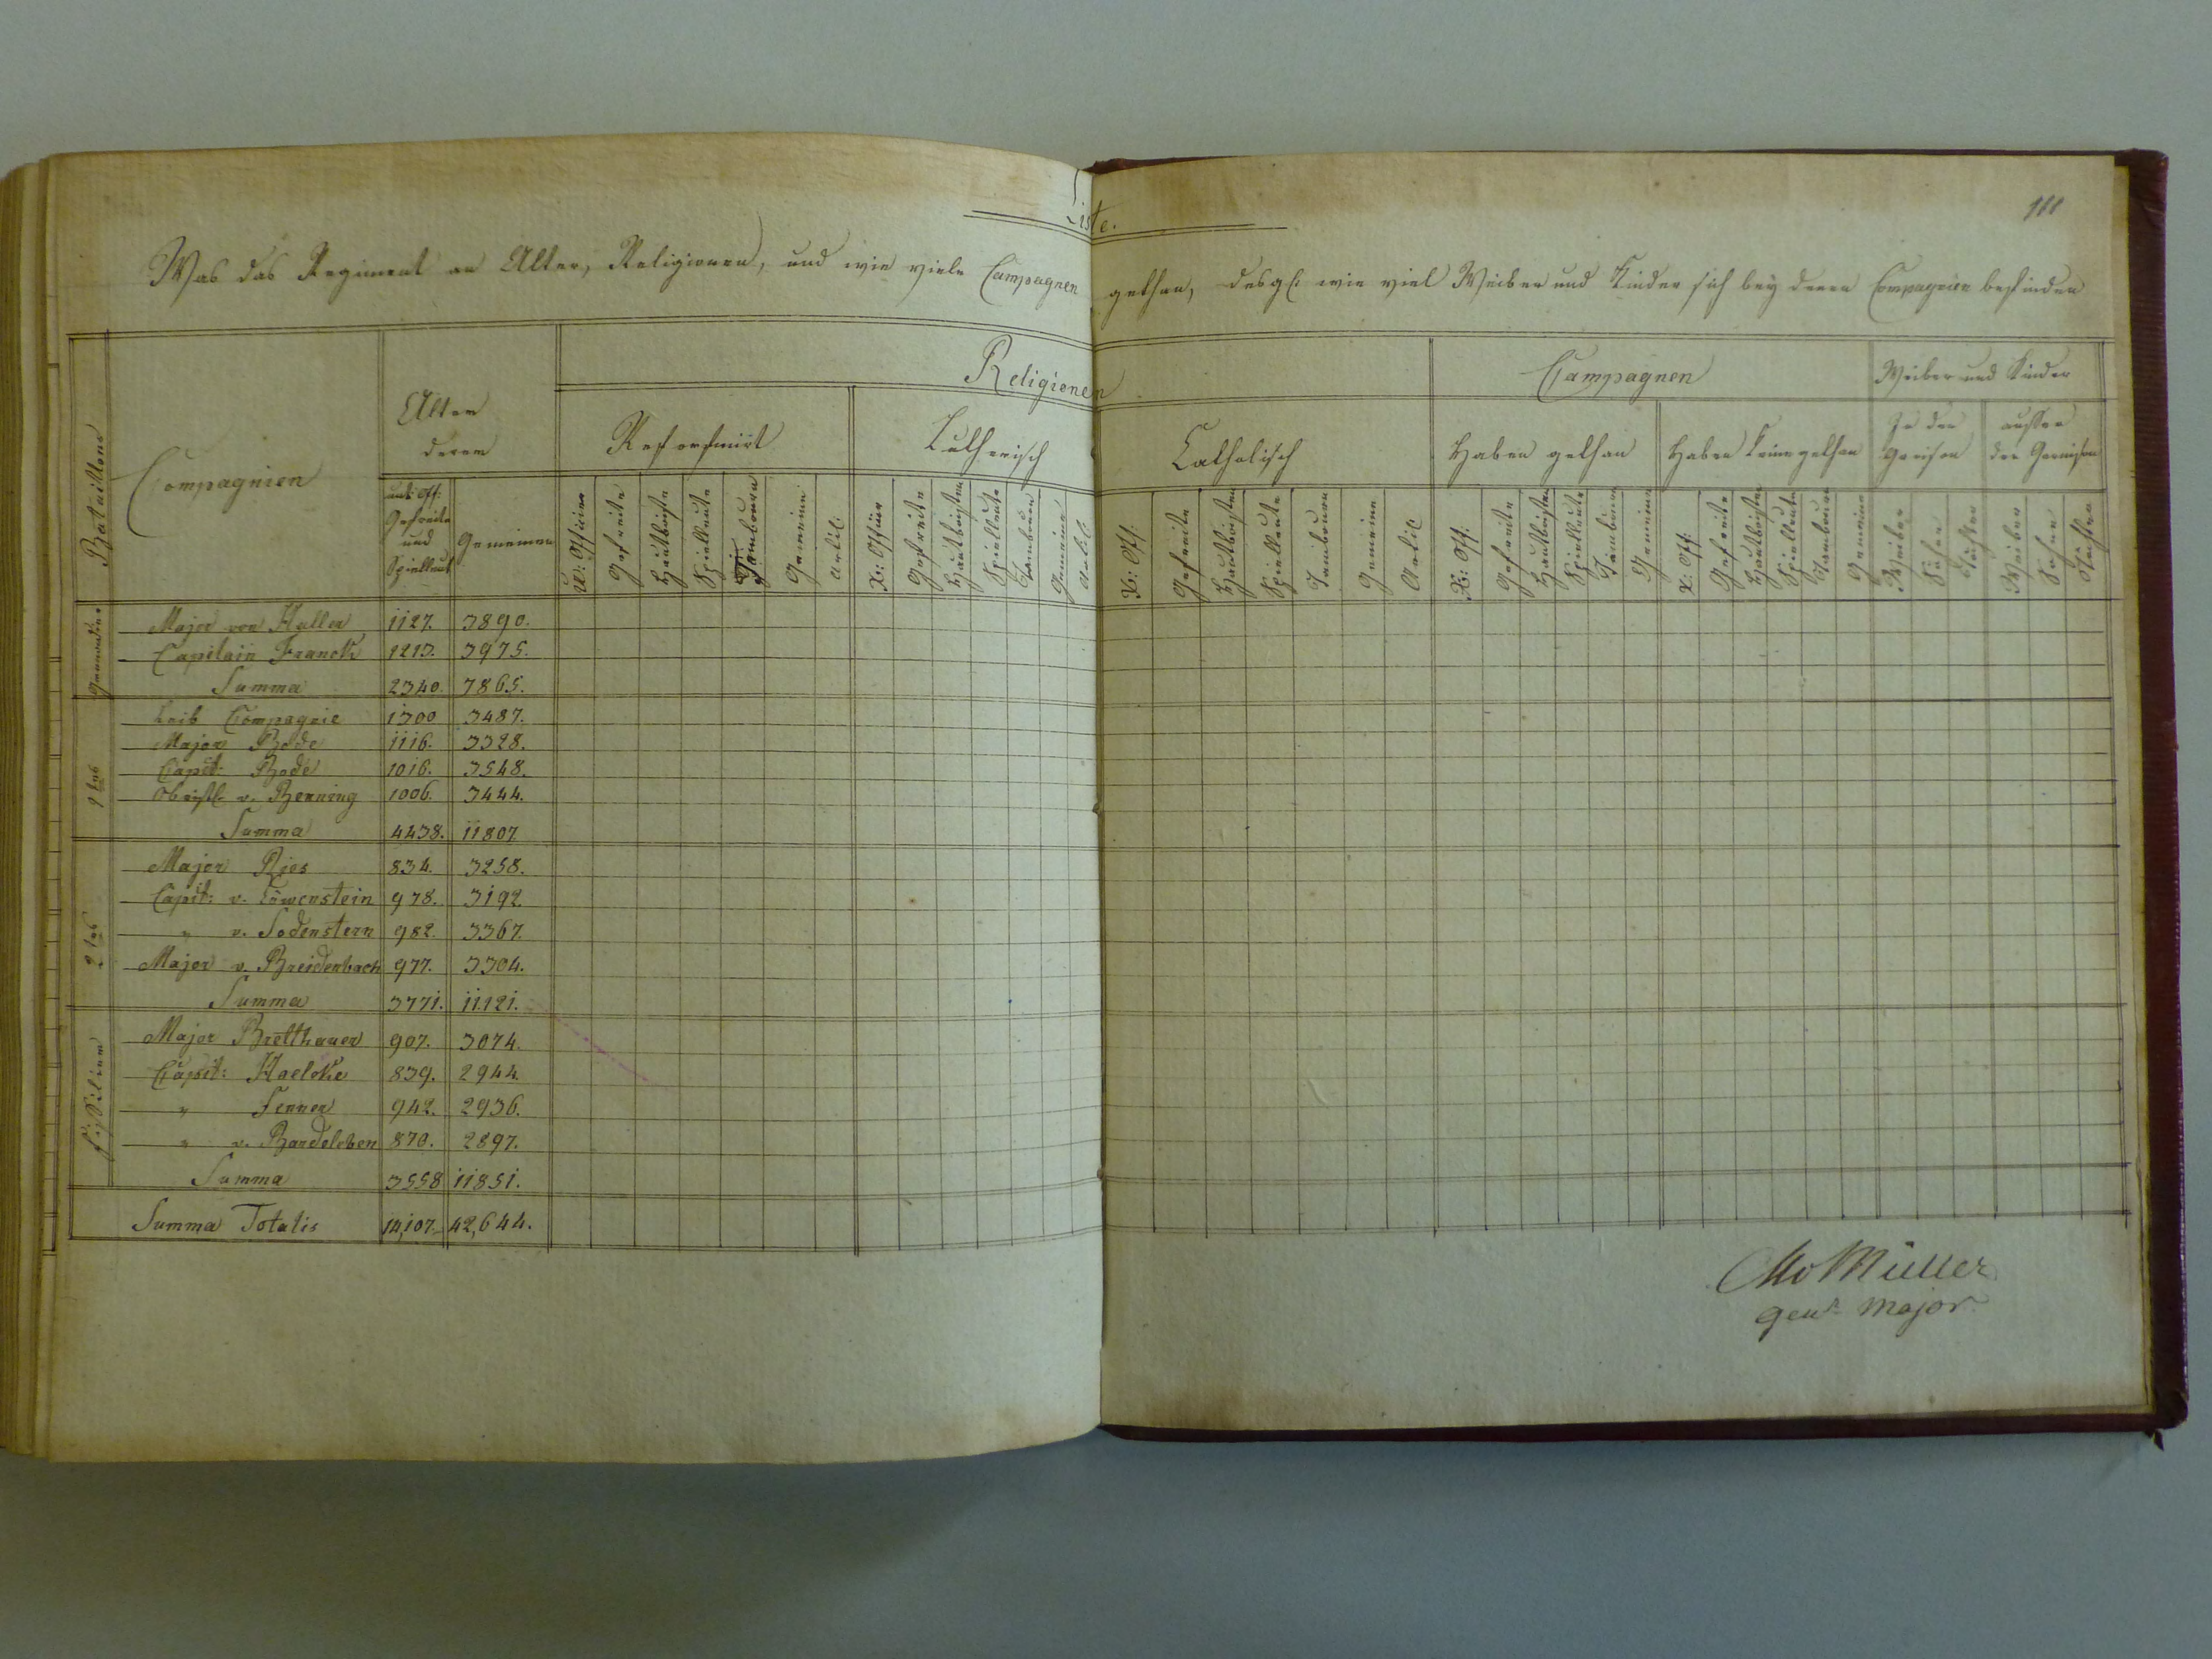 111
Liste.
Was das Regiment an Alter, Religionen, und wie viele Campagnen gethan, desgl. wie viel Weiber und Kinder sich bey denen Compagnien befinden
Bataillons
Compagnien
Alter
derer
Religionen
Campagnen
Weiber und Kinder
Reformirt
Lutherisch
Catholisch
Haben gethan
Haben keine gethan
In der Garnison
ausser der Garnison
unt: Off: Gefreite und Spielleut
Gemeinen
U: Officier Gefreite Hautboiste Spielleute Tambours Gemeine Artil:
U: Officier Gefreite Hautboisten Spielleute Tambours Gemeine Artil:
U: Off: Gefreite Hautboisten Spielleute Tambours Gemeine Artil:
U: Off: Gefreite Hautboisten Spielleute Tambours Gemeine
U: Off: Gefreite Hautboisten Spielleute Tambours Gemeine
Weiber Söhne Töchter
Weiber Söhne Töchter
Grenadier
Major von Haller 1127. 3890.
Capitain Franck 1213. 3975.
Summa 2340. 7865.
1tes
Leib Compagnie 1300 3487.
Major Bode 1116. 3328.
Capit: Bode 1016. 3548.
Obristl. v. Benning 1006. 3444.
Summa 4438. 11807
2tes
Major Ries 834. 3258.
Capit: v. Löwenstein 978. 3192.
" v. Sodenstern 982. 3367.
Major v. Breidenbach 977. 3304.
Summa 3771. 11.121.
Füsilier
Major Bretthauer 907. 3074.
Capit: Haelcke 839. 2944.
" Fenner 942. 2936.
" v. Bardeleben 870. 2897.
Summa 3558 11851.
Summa Totalis 14,107. 42,644.
Müller
Genl. Major